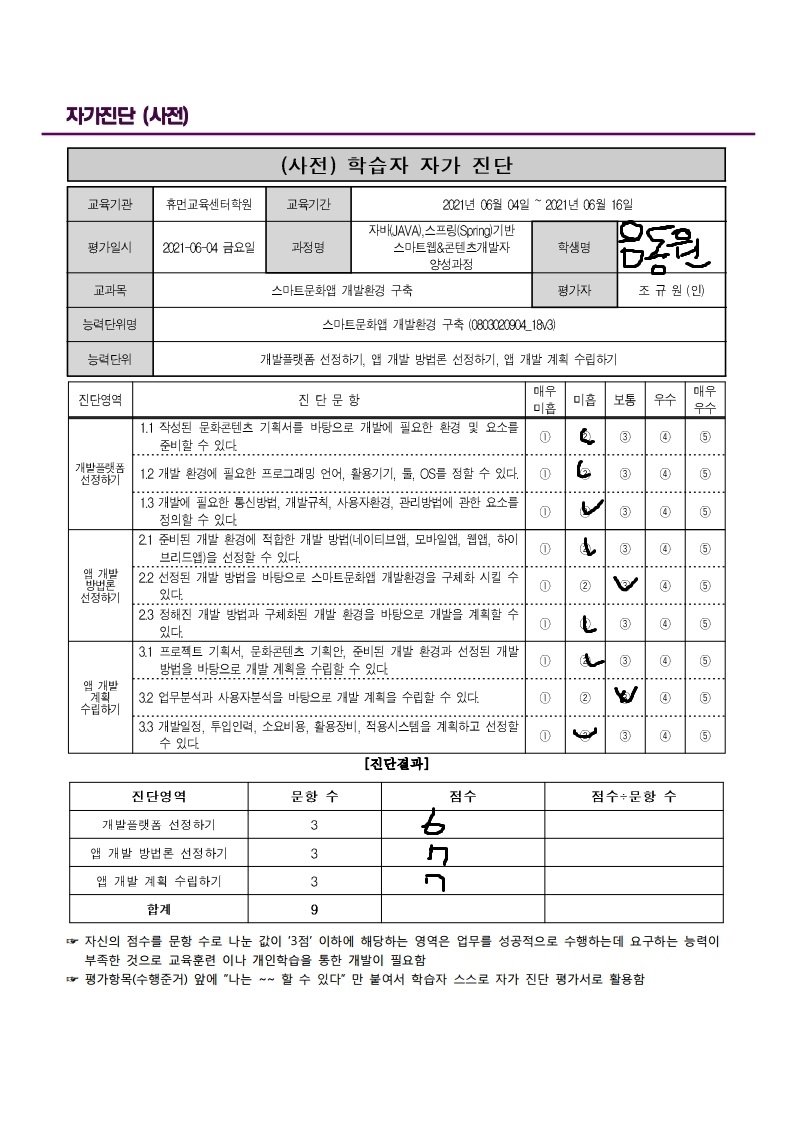 자가진단 (사전)
(사전) 학습자 자가 진단
교육기관 휴먼교육센터학원 교육기간 2021년 06월 04일 ~ 2021년 06월 16일
평가일시 2021-06-04 금요일 과정명 자바(JAVA),스프링(Spring)기반
스마트웹&콘텐츠개발자
양성과정
학생명 음동원
교과목 스마트문화앱 개발환경 구축 평가자 조 규 원 (인)
능력단위명 스마트문화앱 개발환경 구축 (0803020904_18v3)
능력단위 개발플랫폼 선정하기, 앱 개발 방법론 선정하기, 앱 개발 계획 수립하기
진단영역 진 단 문 항 매우 미흡 미흡 보통 우수 매우 우수
개발플랫폼
선정하기
1.1 작성된 문화콘텐츠 기획서를 바탕으로 개발에 필요한 환경 및 요소를
준비할 수 있다. ① ② ③ ④ ⑤
1.2 개발 환경에 필요한 프로그래밍 언어, 활용기기, 툴, OS를 정할 수 있다. ① ② ③ ④ ⑤
1.3 개발에 필요한 통신방법, 개발규칙, 사용자환경, 관리방법에 관한 요소를
정의할 수 있다. ① ② ③ ④ ⑤
앱 개발
방법론
선정하기
2.1 준비된 개발 환경에 적합한 개발 방법(네이티브앱, 모바일앱, 웹앱, 하이
브리드앱)을 선정할 수 있다. ① ② ③ ④ ⑤
2.2 선정된 개발 방법을 바탕으로 스마트문화앱 개발환경을 구체화 시킬 수
있다. ① ② ③ ④ ⑤
2.3 정해진 개발 방법과 구체화된 개발 환경을 바탕으로 개발을 계획할 수
있다. ① ② ③ ④ ⑤
앱 개발
계획
수립하기
3.1 프로젝트 기획서, 문화콘텐츠 기획안, 준비된 개발 환경과 선정된 개발
방법을 바탕으로 개발 계획을 수립할 수 있다. ① ② ③ ④ ⑤
3.2 업무분석과 사용자분석을 바탕으로 개발 계획을 수립할 수 있다. ① ② ③ ④ ⑤
3.3 개발일정, 투입인력, 소요비용, 활용장비, 적용시스템을 계획하고 선정할
수 있다. ① ② ③ ④ ⑤
[진단결과]
진단영역 문항 수 점수 점수÷문항 수
개발플랫폼 선정하기 3 6
앱 개발 방법론 선정하기 3 7
앱 개발 계획 수립하기 3 7
합계 9
☞ 자신의 점수를 문항 수로 나눈 값이 '3점' 이하에 해당하는 영역은 업무를 성공적으로 수행하는데 요구하는 능력이
부족한 것으로 교육훈련 이나 개인학습을 통한 개발이 필요함
☞ 평가항목(수행준거) 앞에 "나는 ~~ 할 수 있다" 만 붙여서 학습자 스스로 자가 진단 평가서로 활용함